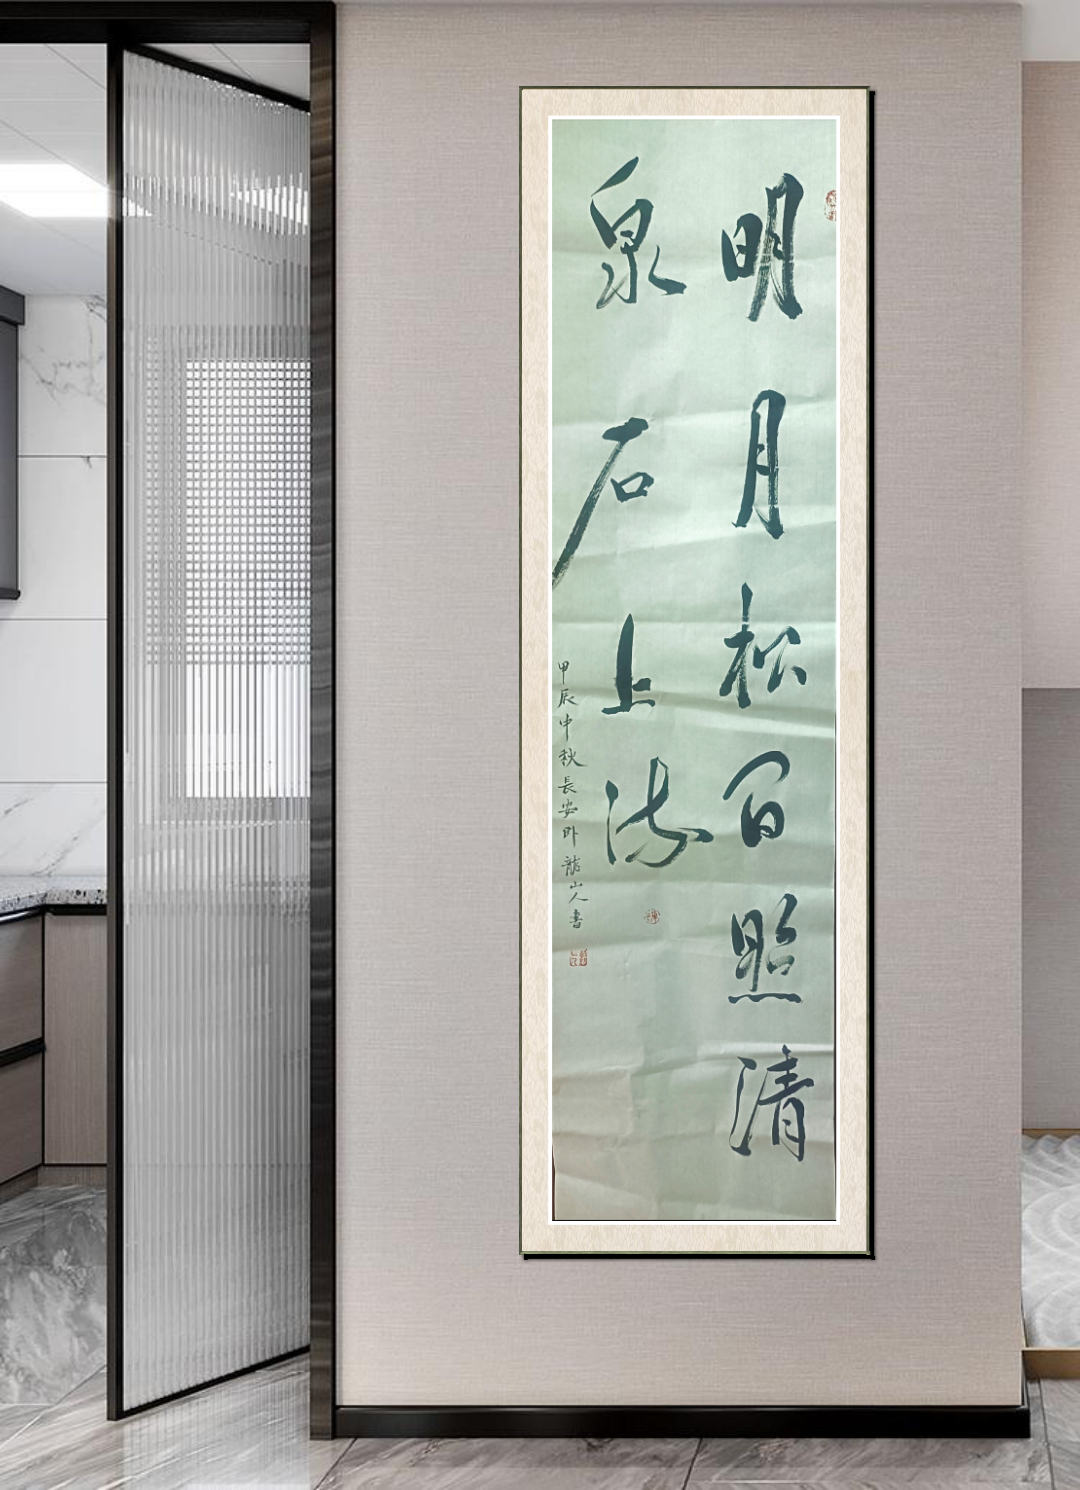 明月松间照清
泉石上流
甲辰中秋長安卧龍山人書